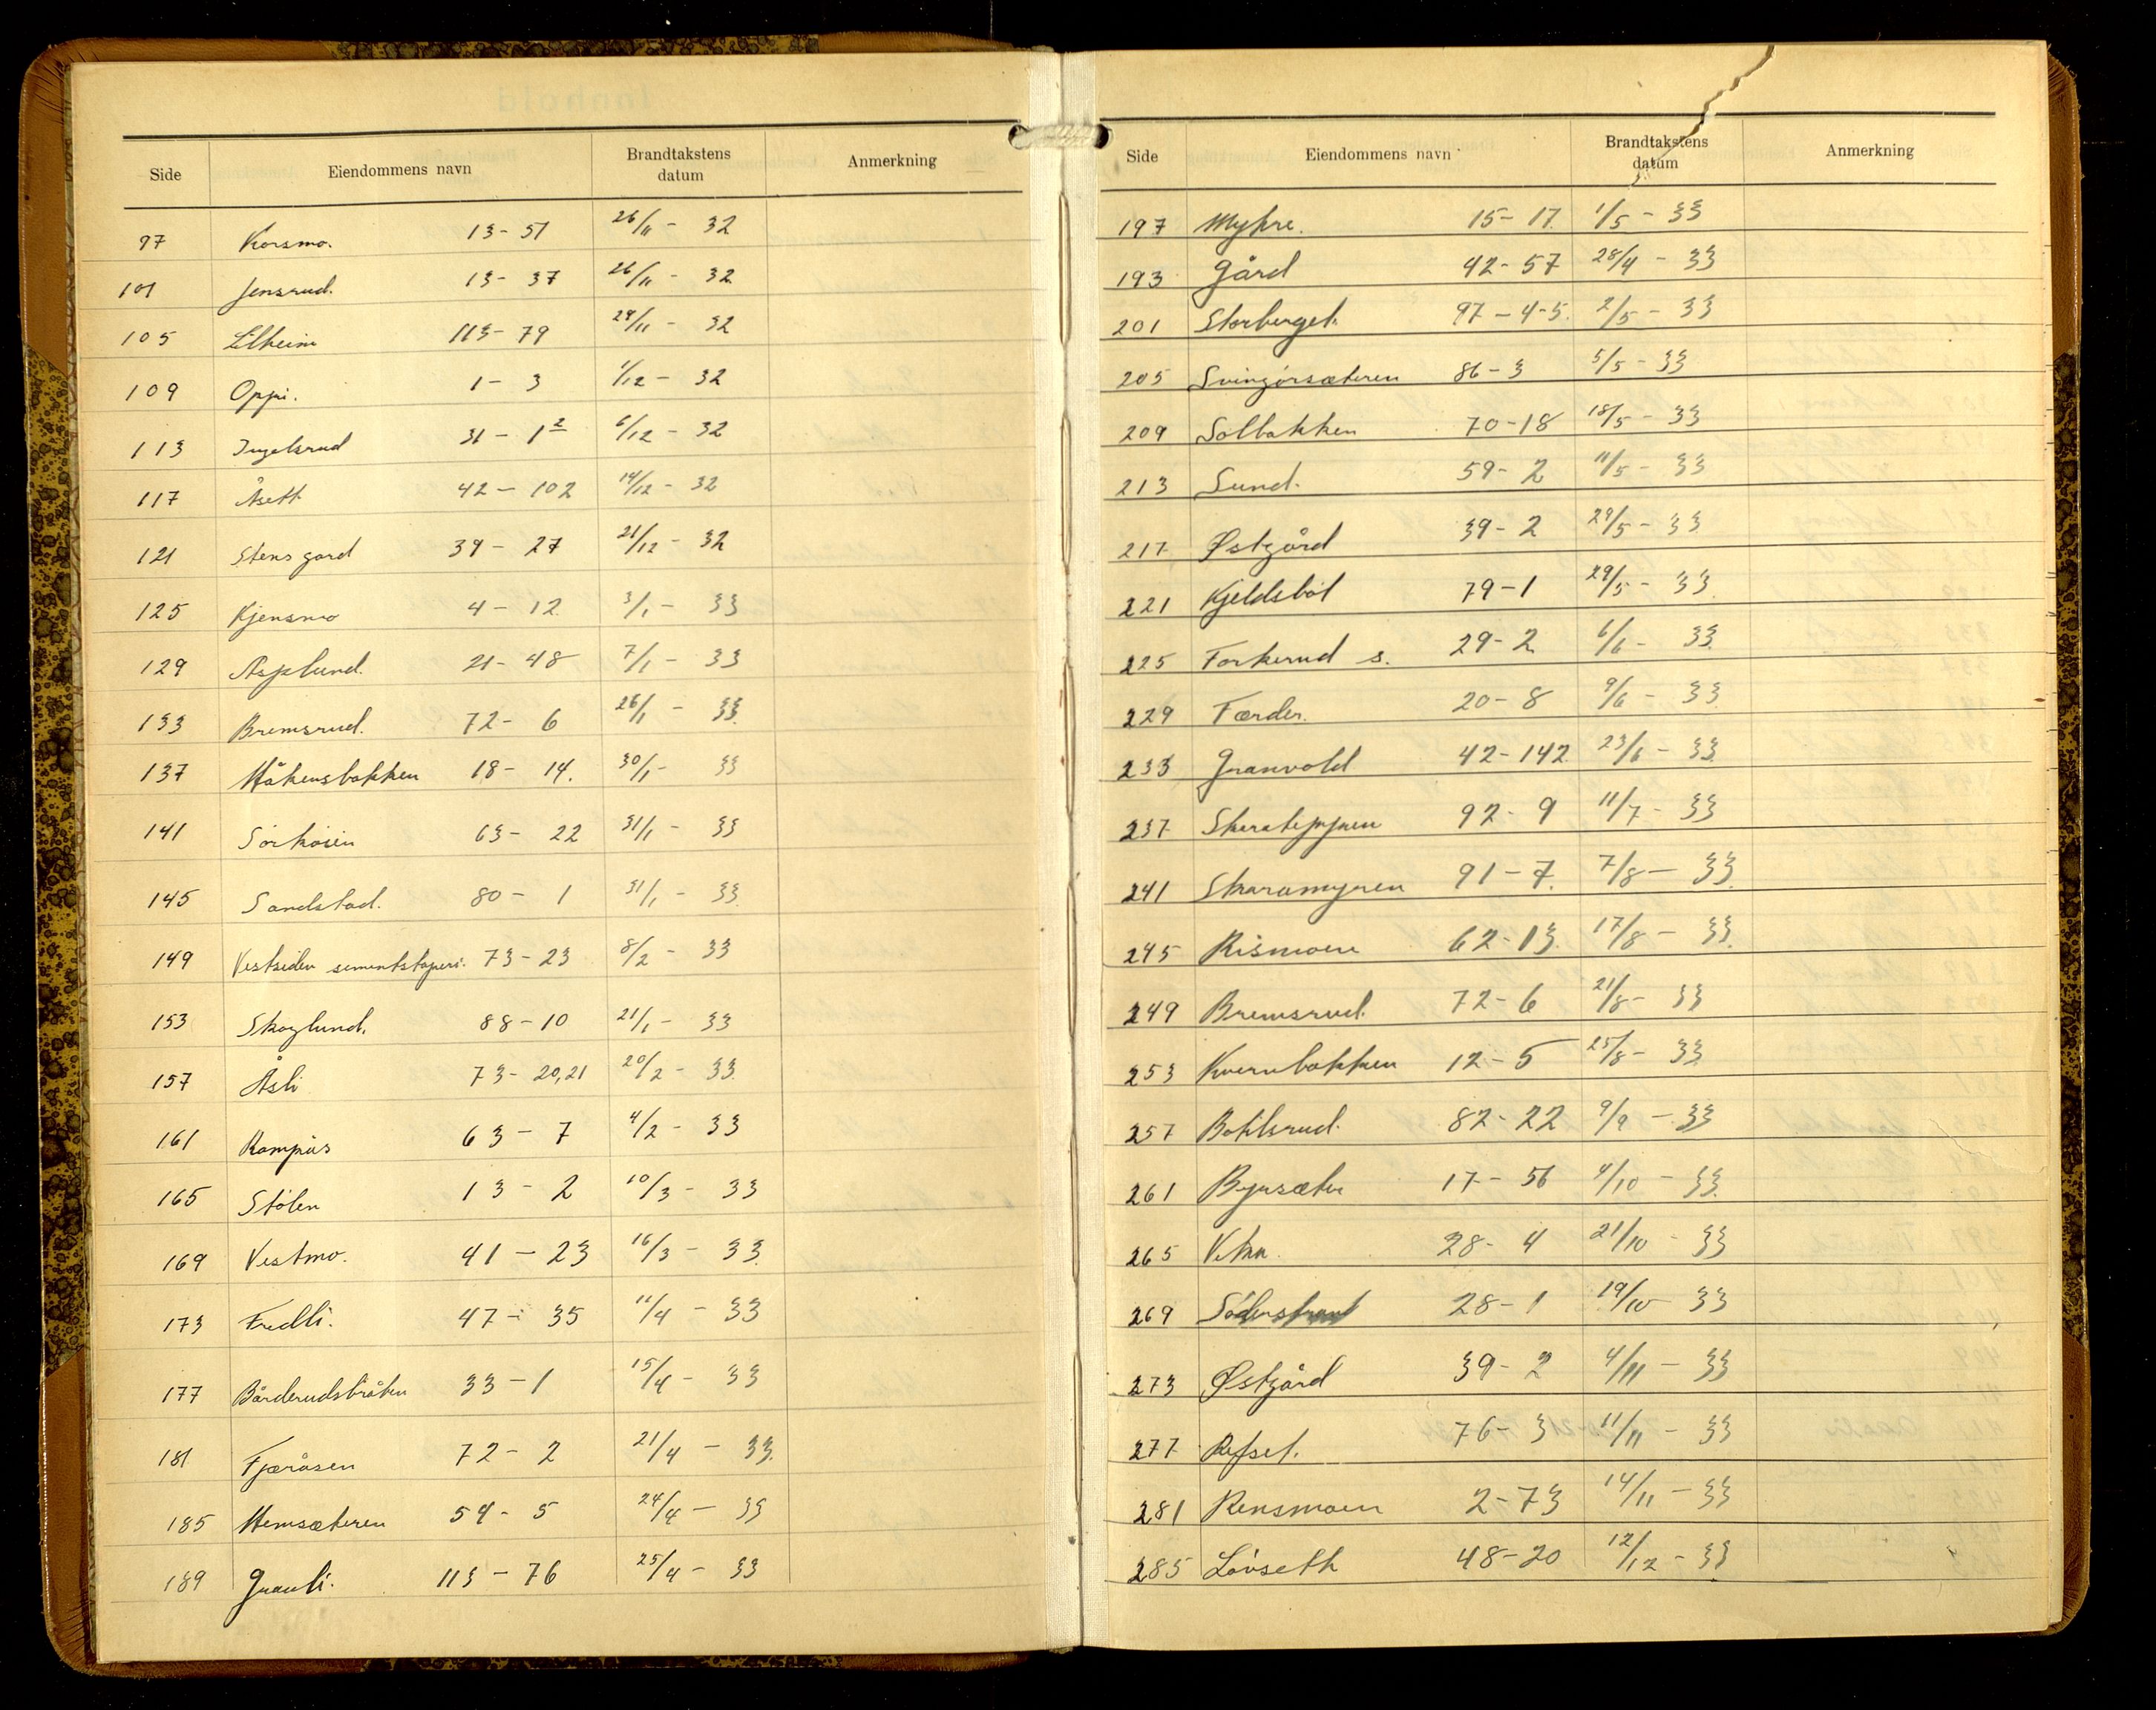 Side Eiendommens navn Brandtakstens datum Anmerkning
97 Korsmo. 13-51 26/11 - 32
101 Jensrud. 13-37 26/11 - 32
105 Elheim 113-79 29/11 - 32
109 Oppi. 1-3 1/12 - 32
113 Ingelsrud 31-1² 6/12 - 32
117 Åsett 42-102 14/12 - 32
121 Stensgard 39-27 21/12 - 32
125 Kjensmo 4-12 3/1 - 33
129 Asplund. 21-48 7/1 - 33
133 Bremsrud. 72-6 26/1 - 33
137 Håkensbakken 18-14. 30/1 - 33
141 Sörkösen 63-22 31/1 - 33
145 Sandstad. 80-1 31/1 - 33
149 Vestsiden sementstøperi. 73-23 8/2 - 33
153 Skoglund. 88-10 21/1 - 33
157 Åsli 73-20,21 20/2 - 33
161 Kampås 63-7 4/2 - 33
165 Stölen 13-2 10/3 - 33
169 Vestmo. 41-23 16/3 - 33
173 Fredli. 47-35 11/4 - 33
177 Bårderudsbråten 33-1 15/4 - 33
181 Fjæråsen 72-2 21/4 - 33
185 Hemsæteren 54-5 24/4 - 33
189 Granli. 113-76 25/4 - 33
Side Eiendommens navn Brandtakstens datum Anmerkning
197 Myhre. 15-17 1/5 - 33
193 Gård 42-57 28/4 - 33
201 Storberget. 97-4-5. 2/5 - 33
205 Svingörsæteren 86-3 5/5 - 33
209 Solbakken 70-18 18/5 - 33
213 Sund. 59-2 11/5 - 33
217 Østgård 39-2 29/5 - 33
221 Kjeldsböl 79-1 29/5 - 33
225 Forkerud s. 29-2 6/6 - 33
229 Færder. 20-8 9/6 - 33
233 Granvold 42-142 23/6 - 33
237 Skarateppen 92-9 11/7 - 33
241 Skaramyren 91-7. 7/8 - 33
245 Rismoen 62-13. 17/8 - 33
249 Bremsrud. 72-6 21/8 - 33
253 Kvernbakken 12-5 25/8 - 33
257 Bohlsrud. 82-22 9/9 - 33
261 Bynsæter 17-56 4/10 - 33
265 28-4 21/10 - 33
269 Söderstrand 28-1 19/10 - 33
273 Østgård 39-2 4/11 - 33
277 Refset. 76-3 11/11 - 33
281 Rensmoen 2-73 14/11 - 33
285 Lövseth 48-20 12/12 - 33